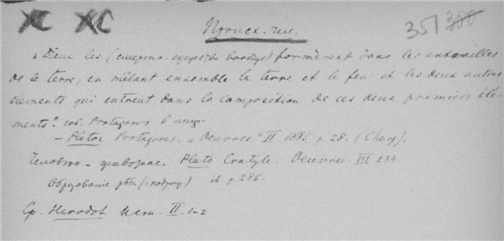 Происх. чел.
35/380
"Dieux les (смертн. существа вообще) formèrent dans les entrailles
de la terre, en mêlant ensemble la terre et le feu et les deux autres
éléments qui entrent dans la composition de ces deux premiers élé-
ments". Protagoras в
— Platon Protagoras. "Oeuvres" III 1885 p. 28.
Человек - Plato Cratyle. Oeuvres III 234
Образование id p. 286.
Ср. Herodot Ист. II. 1-2